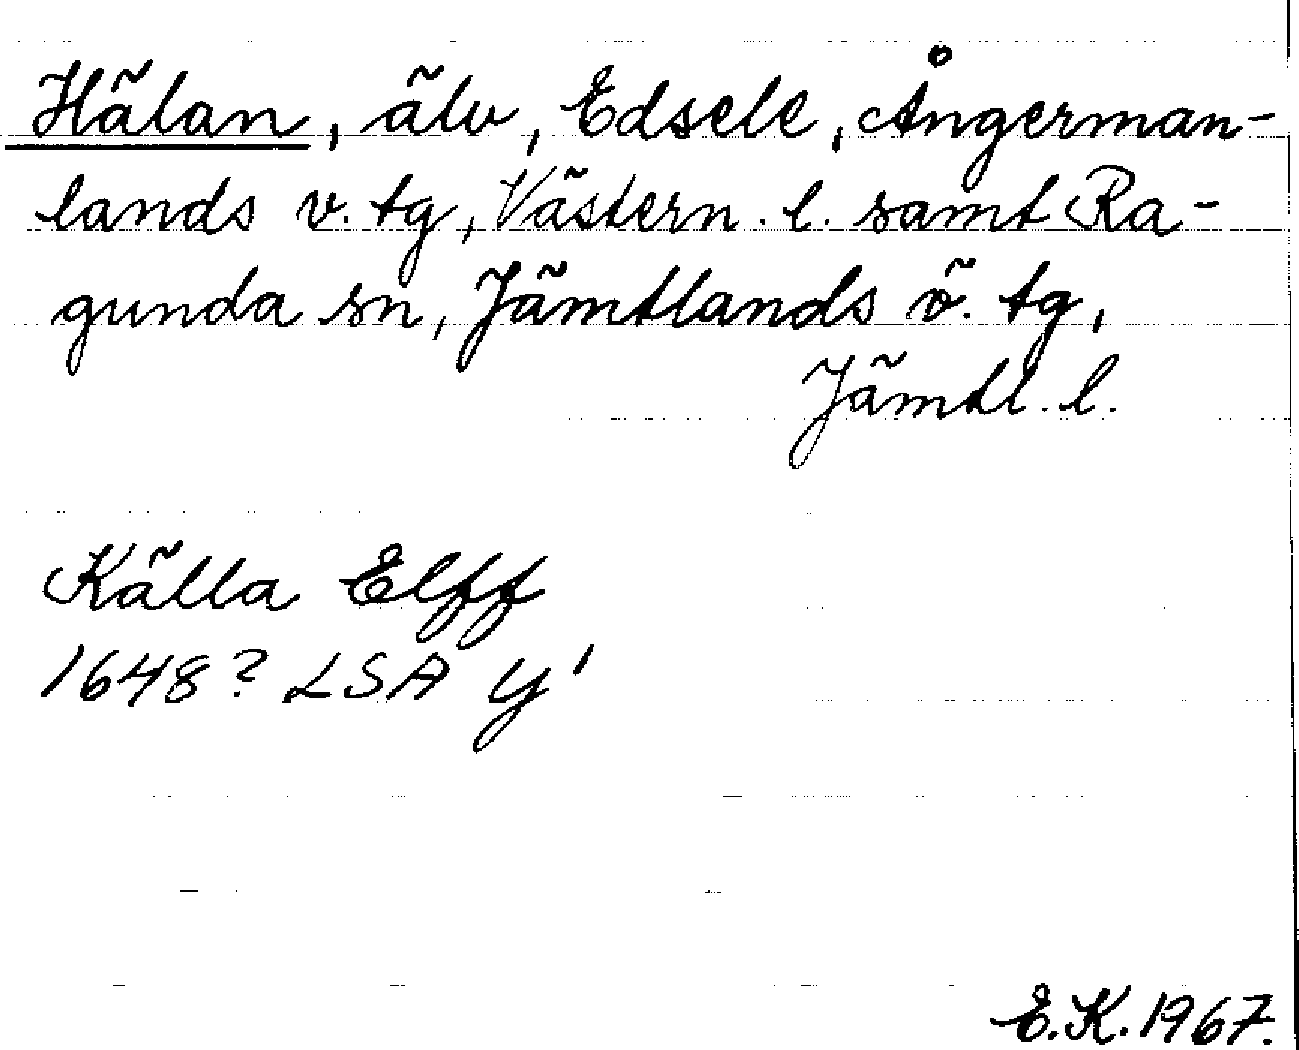 Hälan, älv, Edsele, Ångerman-
lands v. tg, Västern. l. samt Ra-
gunda sn, Jämtlands ö. tg,
Jämtl. l.
Källa Elff
1648? LSA y'
E.K. 1967.